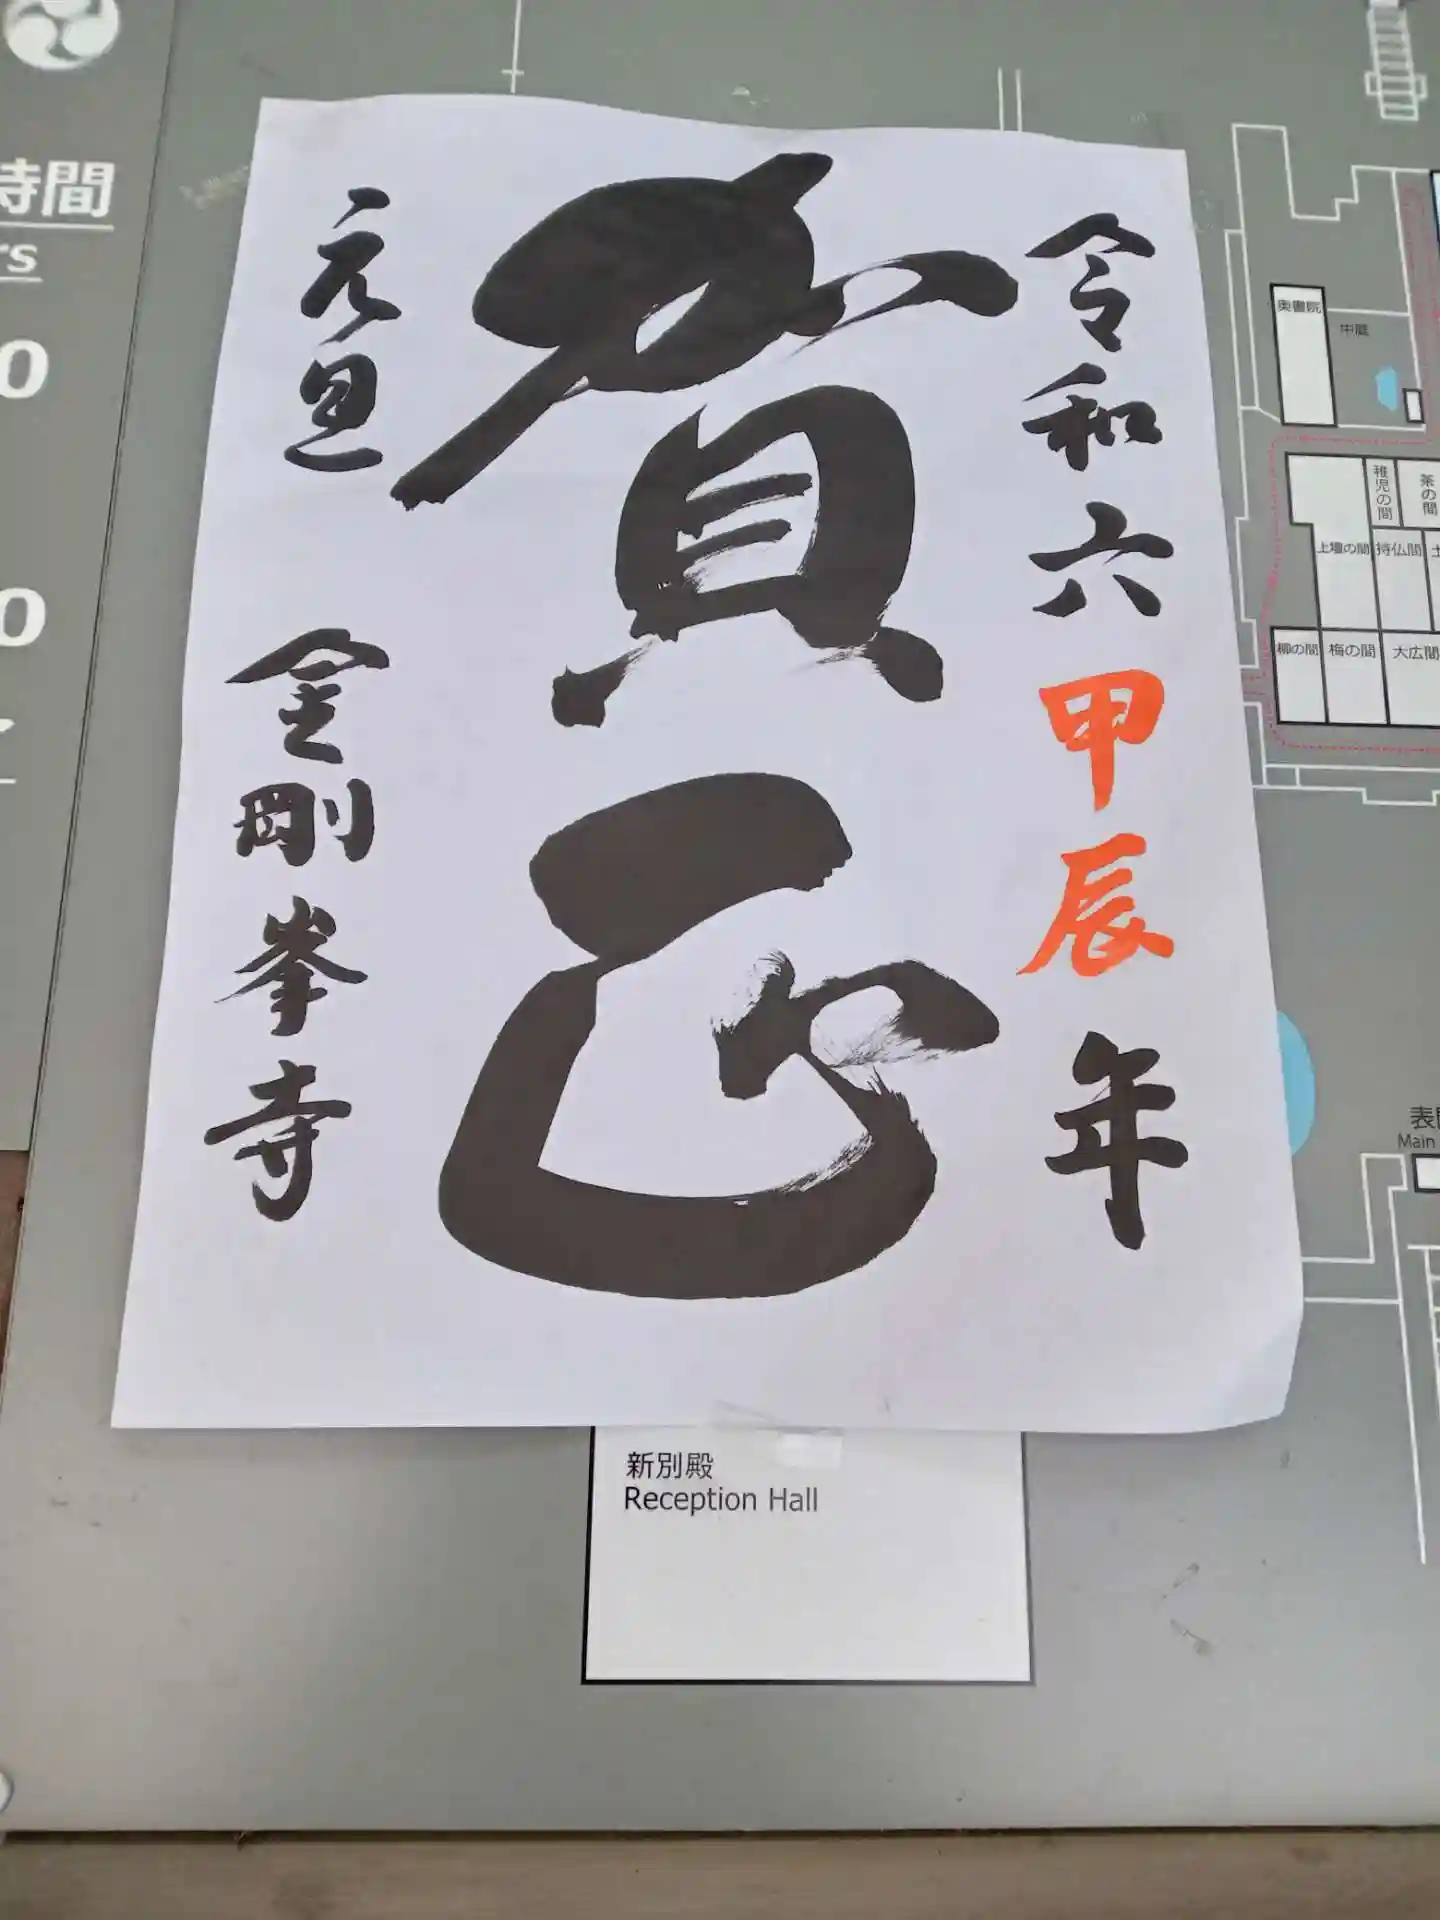 令和六甲辰年
賀正
元旦
金剛峯寺
時間
rs
0
0
奥書院
中庭
稚児の間
茶の間
上壇の間
持仏間
柳の間
梅の間
大広間
表
Main
新別殿
Reception Hall